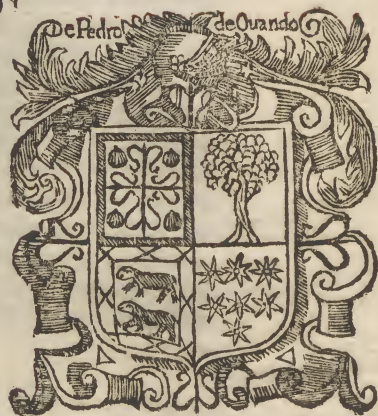 De Pedro de Ouando